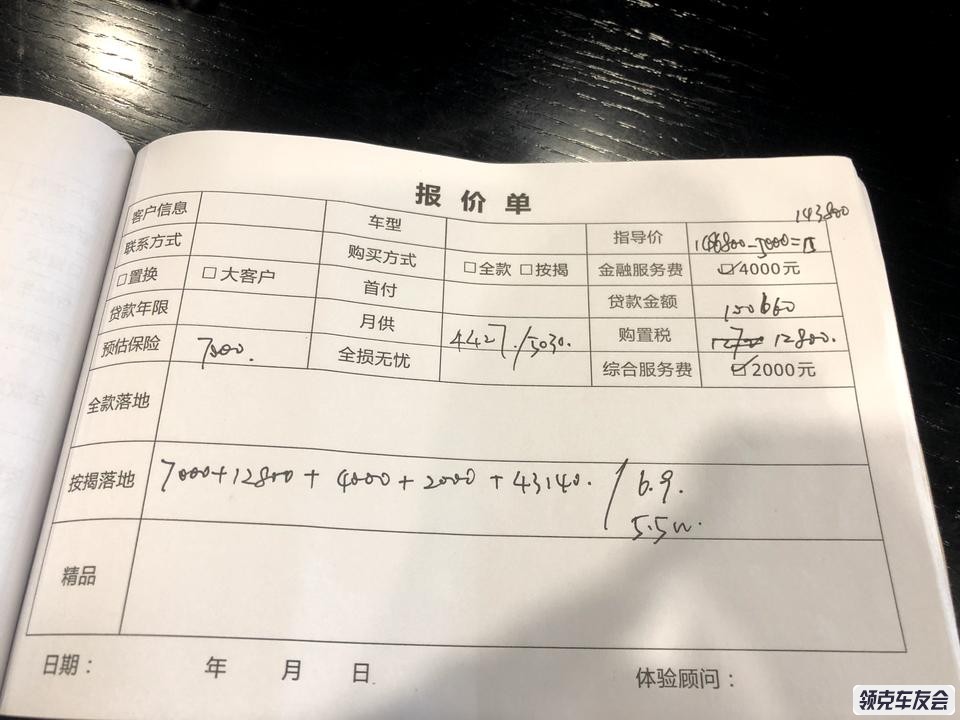 报价单
143800
客户信息 车型 指导价 146800-3000=
联系方式 购买方式 □全款 □按揭 金融服务费 ☑4000元
□置换 □大客户 首付 贷款金额 100660
贷款年限 月供 4427./3030. 购置税 12800.
预估保险 7000. 全损无忧 综合服务费 ☑2000元
全款落地
按揭落地 7000+12800+4000+2000+43140. / 6.9.
5.5w.
精品
日期： 年 月 日 体验顾问：
领克车友会